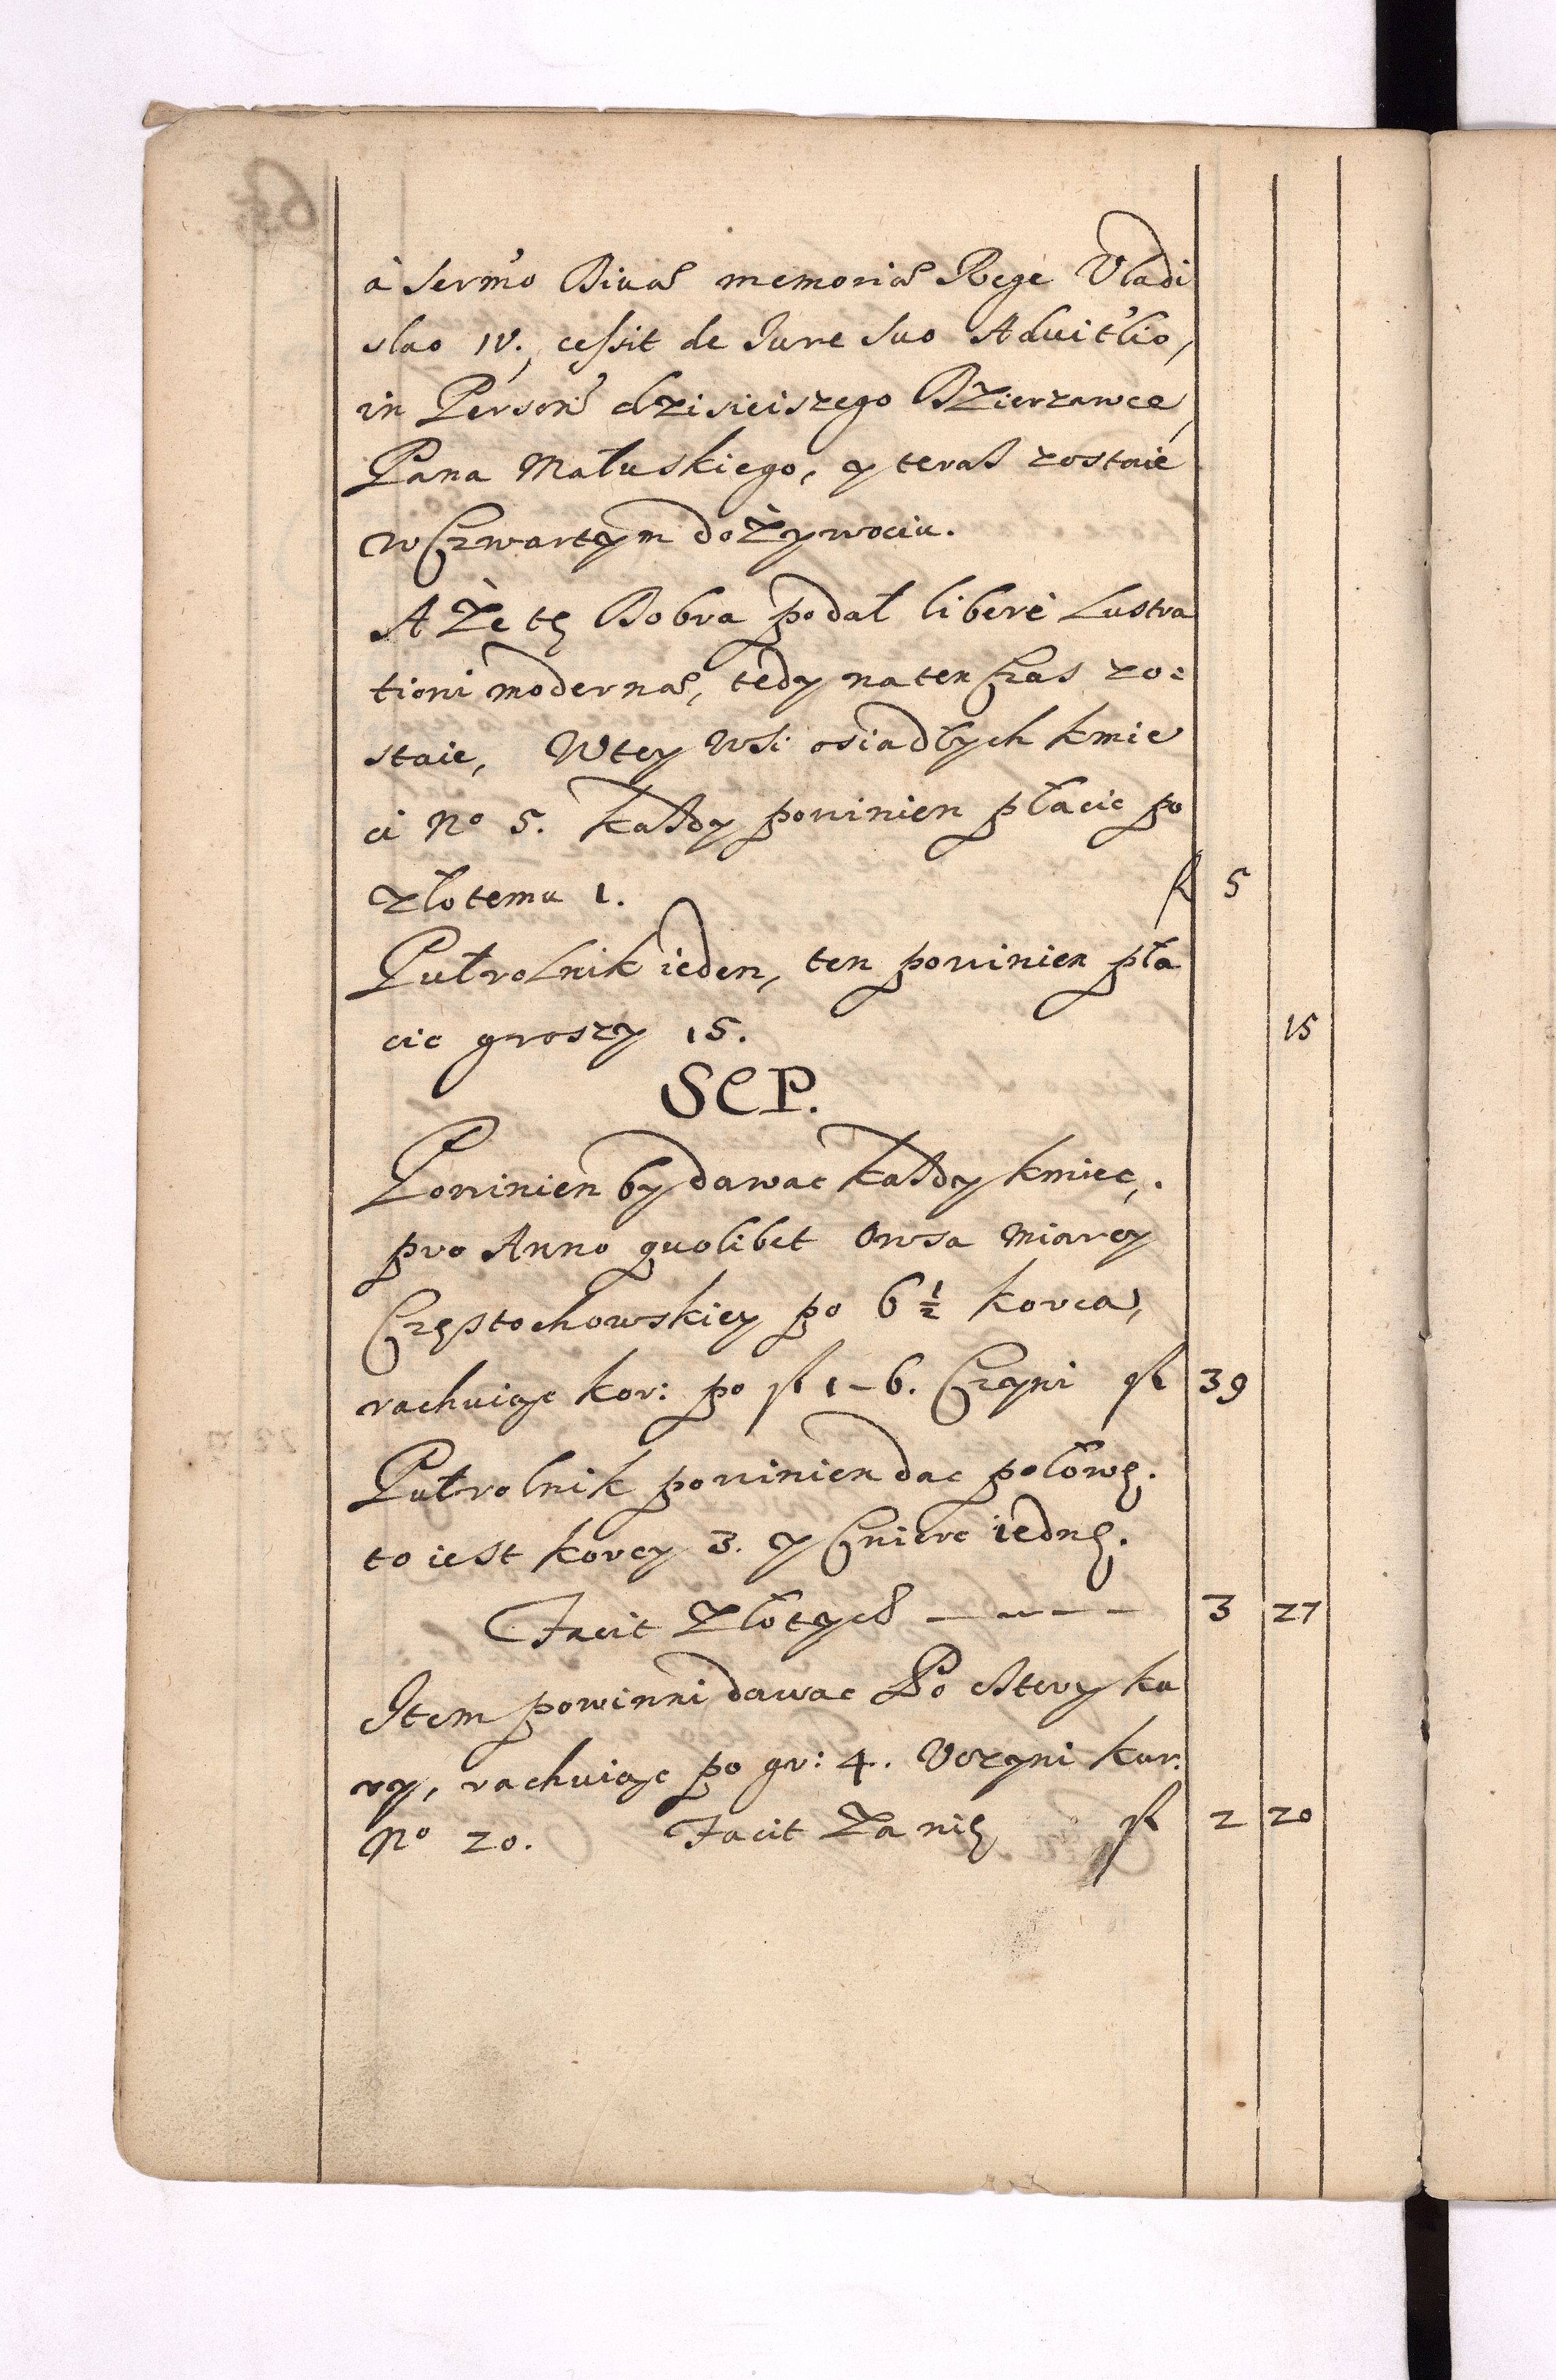 à Sermo Divae memoriae Rege Vladi
slao IV. cessit de Iure suo Advitlio,
in Person dzisieiszego Dzierzawce
Pana Małuskiego, y teras zostaie
w Czwartym dożywociu.
A że tę Dobra podał liberè Lustra
tioni modernae, tedy na ten Czas zo=
staie, W tey Wsi osiadłych kmie
ci No 5. każdy powinien płacic po
złotemu 1. fl 5
Pułrolnik ieden, ten powinien pła
cic groszy 15. 15
SEP.
Powinien by dawac każdy kmiec,
pro Anno quolibet Owsa miary
Częstochowskiey po 6 1/2 korca,
rachuiąc kor: po fl 1-6. Czyni fl 39
Pułrolnik powinien dac połowę.
to iest korcy 3. y Cwierc iednę.
Facit złotych ---- 3 27
Item powinni dawac Po cztery ku
ry, rachuiąc po gr: 4. Uczyni kur:
No 20. Facit za nię fl 2 20